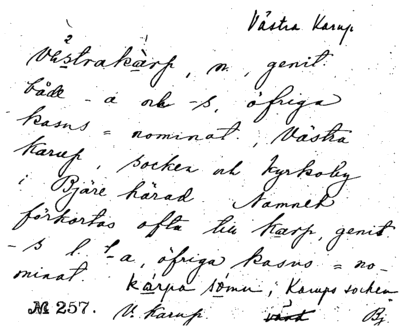 Västra Karup
västrakàrp, n., genit.
både -a och -s, öfriga
kasus = nominat., Västra
Karup, socken och kyrkoby
i Bjäre härad. Namnet
förkortas ofta till karp, genit
-s l. -a, öfriga kasus = no-
minat. kàrpa sòmn; Karups socken
№ 257. V. Karup. Bj.